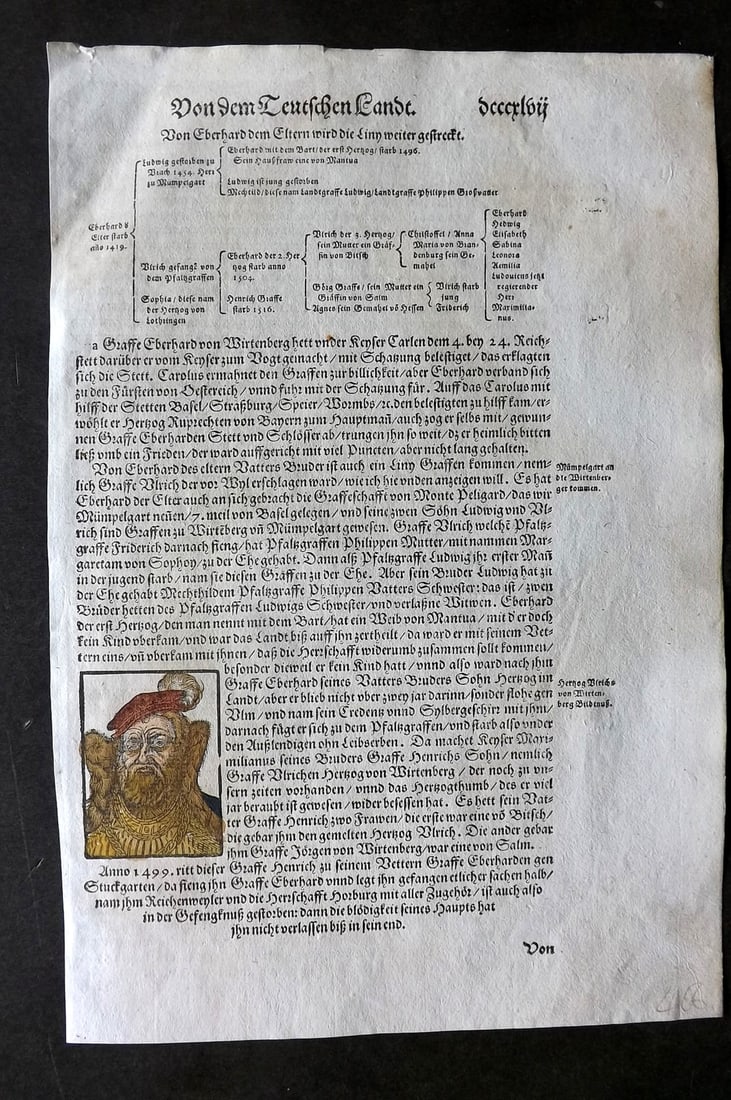 Von dem Teutschen Landt. dcccxlvij
Von Eberhard dem Eltern wird die Liny weiter gestreckt.
Eberhard d
Elter starb
anno 1419.
Ludwig gestorben zu
Vrach 1454. Herr
zu Mümpelgart
Eberhard mit dem Bart/der erst Hertzog/starb 1496.
Sein Haußfraw eine von Mantua
Ludwig ist jung gestorben
Mechtild/diese nam Landtgraffe Ludwig/Landtgraffe Philippen Großvatter
Vlrich gefangē von
dem Pfaltzgraffen
Sophia/diese nam
der Hertzog von
Lothringen
Eberhard der 2. Her
tzog starb anno
1504.
Henrich Graffe
starb 1516.
Vlrich der 3. Hertzog/
sein Mutter ein Gräf-
fin von Bitsch
Görg Graffe/sein Mutter ein
Gräffin von Salm
Agnes sein Gemahel vō Hessen
Christoffel/Anna
Maria von Bran-
denburg sein Ge-
mahel
Vlrich starb
jung
Friderich
Eberhard
Hedwig
Elisabeth
Sabina
Leonora
Aemilia
Ludouicus jetzt
regierender
Herr
Maximilia-
nus.
a Graffe Eberhard von Wirtenberg hett vnder Keyser Carlen dem 4. bey 24. Reich-
stett darüber er vom Keyser zum Vogt gemacht/mit Schatzung belestiget/das erklagten
sich die Stett. Carolus ermahnet den Graffen zur billichkeit/aber Eberhard verband sich
zu den Fürsten von Oestereich/vnnd fuhr mit der Schatzung für. Auff das Carolus mit
hilff der Stetten Basel/Straßburg/Speier/Wormbs/ꝛc. den belestigten zu hilff kam/er-
wöhlt er Hertzog Ruprechten von Bayern zum Hauptmañ/auch zog er selbs mit/gewun-
nen Graffe Eberharden Stett vnd Schlösser ab/trungen jhn so weit/dz er heimlich bitten
ließ vmb ein Frieden/der ward auffgericht mit viel Puncten/aber nicht lang gehalten.
Von Eberhard des eltern Vatters Bruder ist auch ein Liny Graffen kommen/nem-
lich Graffe Vlrich der vor Wyl erschlagen ward/wie ich hie vnden anzeigen will. Es hat
Eberhard der Elter auch an sich gebracht die Graffeschafft von Monte Peligard/das wir
Mümpelgart neñen/7. meil von Basel gelegen/vnd seine zwen Söhn Ludwig vnd Vl-
rich sind Graffen zu Wirtēberg vñ Mümpelgart gewesen. Graffe Vlrich welchē Pfaltz-
graffe Friderich darnach fieng/hat Pfaltzgraffen Philippen Mutter/mit nammen Mar-
garetam von Sophoy/zu der Ehe gehabt. Dann alß Pfaltzgraffe Ludwig jhr erster Mañ
in der jugend starb/nam sie diesen Graffen zu der Ehe. Aber sein Bruder Ludwig hat zu
der Ehe gehabt Mechthildem Pfaltzgraffe Philippen Vatters Schwester: das ist/zwen
Brüder hetten des Pfaltzgraffen Ludwigs Schwester/vnd verlaßne Witwen. Eberhard
der erst Hertzog/den man nennt mit dem Bart/hat ein Weib von Mantua/mit d'er doch
kein Kind vberkam/vnd war das Landt biß auff jhn zertheilt/da ward er mit seinem Vet-
tern eins/vñ vberkam mit jhnen/daß die Herrschafft widerumb zusammen solt kommen/
besonder dieweil er kein Kind hatt/vnnd also ward nach jhm
Graffe Eberhard seines Vatters Bruders Sohn Hertzog im
Landt/aber er blieb nicht vber zwey jar darinn/sonder flohe gen
Vlm/vnd nam sein Credentz vnnd Sylbergeschirr mit jhm/
darnach fügt er sich zu dem Pfaltzgraffen/vnd starb also vnder
den Außlendigen ohn Leibserben. Da machet Keyser Maxi-
milianus seines Bruders Graffe Henrichs Sohn/nemlich
Graffe Vlrichen Hertzog von Wirtenberg/der noch zu vn-
sern zeiten vorhanden/vnnd das Hertzogthumb/des er viel
jar beraubt ist gewesen/wider besessen hat. Es hett sein Vat-
ter Graffe Henrich zwo Frawen/die erste war eine vō Bitsch/
die gebar jhm den gemelten Hertzog Vlrich. Die ander gebar
jhm Graffe Jörgen von Wirtenberg/war eine von Salm.
Anno 1499. ritt dieser Graffe Henrich zu seinem Vettern Graffe Eberharden gen
Stuckgarten/da fieng jhn Graffe Eberhard vnnd legt jhn gefangen etlicher sachen halb/
nam jhm Reichenweyler vnd die Herrschafft Horburg mit aller Zugehör/ist auch also
in der Gefengknuß gestorben: dann die blödigkeit seines Haupts hat
jhn nicht verlassen biß in sein end.
Von
Mümpelgart an
die Wirtenber-
ger kommen.
Hertzog Vlrichs
von Wirten-
berg Bildtnuß.